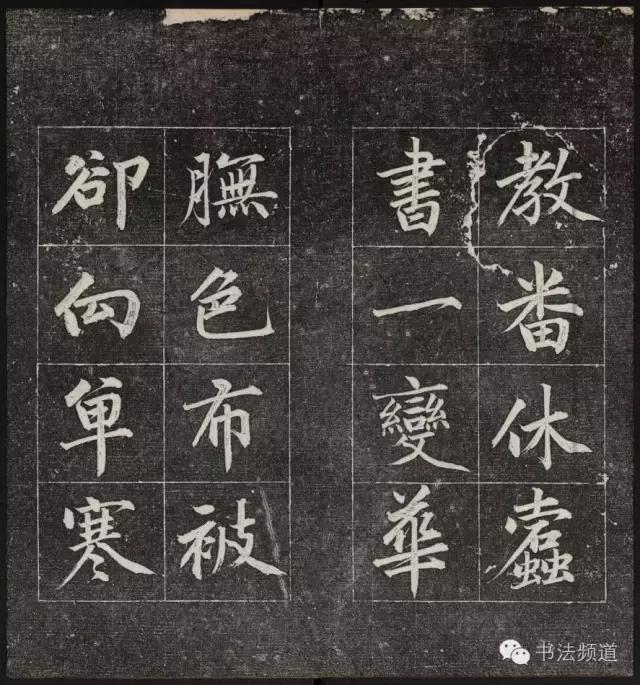 教番休蠹
書一變華
膴色布被
卻向單寒
书法频道